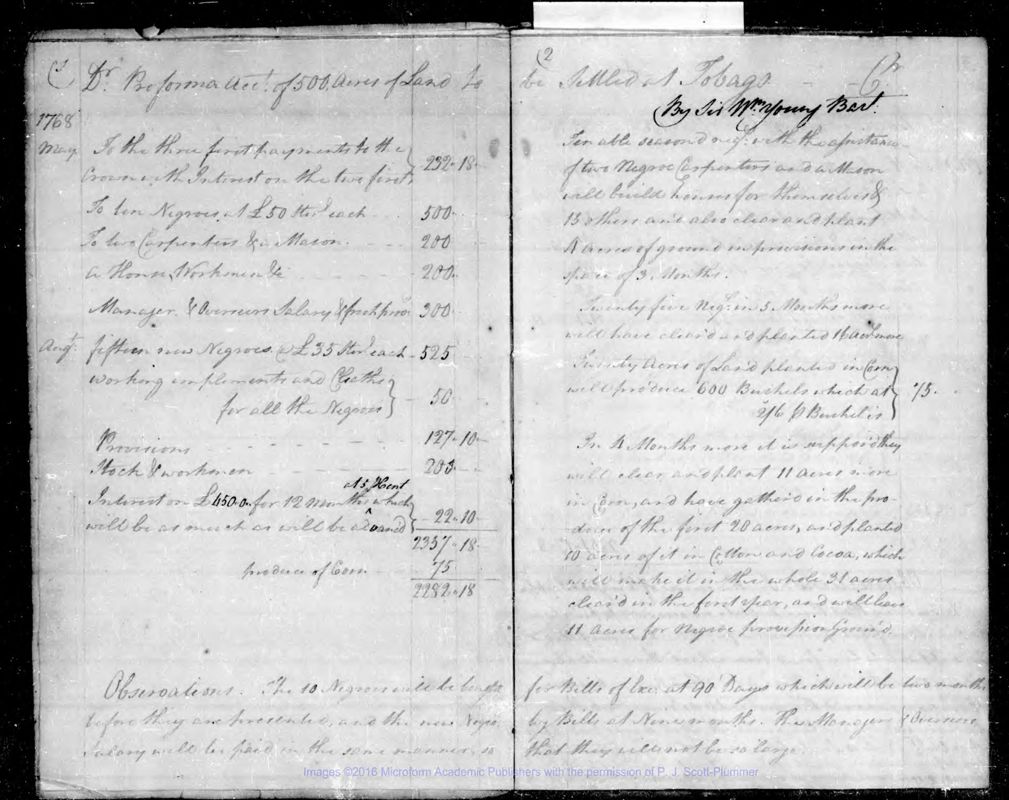 (1
Dr. Proforma Acct. of 500 Acres of Land to
1768
May To the three first payments to the
Crown with Interest on the two first } 232 " 18
To ten Negroes, at £50 Ster. each 500
To two Carpenters & a Mason 200
a House, Workmen &c 200
Manager & Overseers Salary & fresh provs. 300
Augt. fifteen new Negroes @ £35 Ster. each 525
working impliments and Cloaths
for all the Negroes } 50
Provisions 127 " 10
Stock & workmen 200
at 5 P Cent
Interest on £450.0 for 12 months which
will be as much as will be advanc'd } 22 " 10
2357 " 18
produce of Corn 75
2282 " 18
Observations. The 10 Negroes will be bought
before they are presented, and the new Negroes
Salary will be paid in the same manner, so
(2
be Settled at Tobago Cr
By Sir Wm. Young Bart.
Ten able season'd neg. with the assistance
of two Negroe Carpenters and a Mason
will build houses for themselves &
15 others and also clear and plant
4 acres of ground in provisions in the
space of 3 Months.
Twenty five Neg. in 5 Months more
will have clear'd and planted 16 acrs. more
Twenty Acres of Land planted in Corn
will produce 600 Bushels which at } 75
2/6 P Bushel is
In 4 Months more it is suppos'd they
will clear and plant 11 acres more
in Corn, and have gather'd in the pro-
duce of the first 20 acres, and planted
10 acres of it in Cotton and Cocoa, which
will make it in the whole 31 acres
clear'd in the first year, and will leave
11 Acres for Negroe provision Ground.
for Bills of Exc. at 90 Days which will be two months
by Bills at Nine months. The Managers & Overseers
that they will not be so large.
Images ©2016 Microform Academic Publishers with the permission of P. J. Scott-Plummer